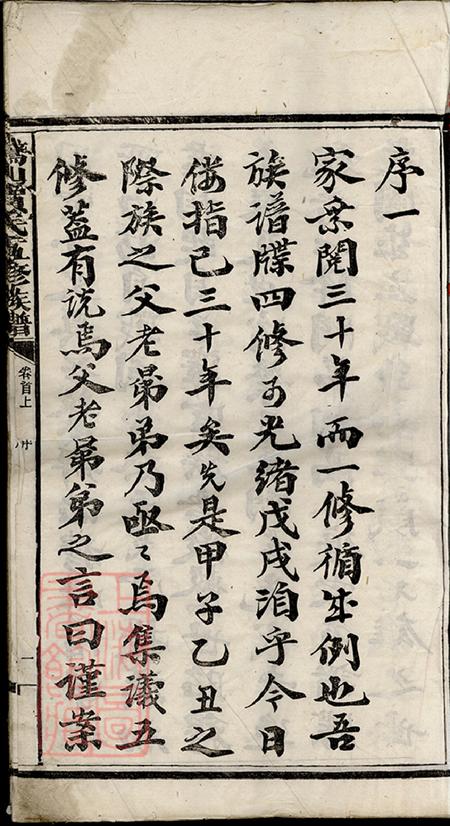 序一
家乘閱三十年而一修循成例也吾
族譜牒四修于光緒戊戌洎乎今日
倭指已三十年矣先是甲子乙丑之
際族之父老昴弟乃亟〻焉集議五
修蓋有説焉父老昴弟之言曰谨案
賀氏五修族譜
卷首上